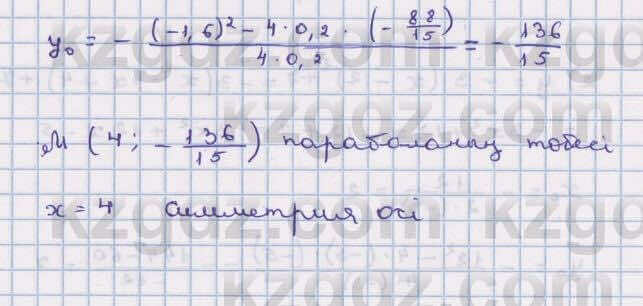 y₀ = - ((-1,6)² - 4 · 0,2 · (- 88/15)) / (4 · 0,2) = - 136/15
M (4; - 136/15) параболаның төбесі
x = 4 симметрия осі
kzgdz.com